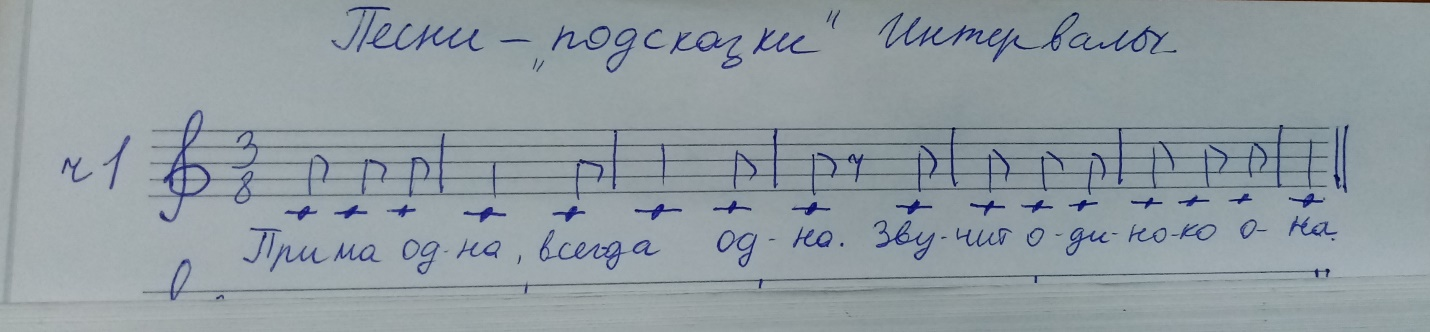 Песни - „подсказки" Интервалы
ч1 3/8
Прима од-на, всегда од-на. Зву-чит о-ди-но-ко о-на.